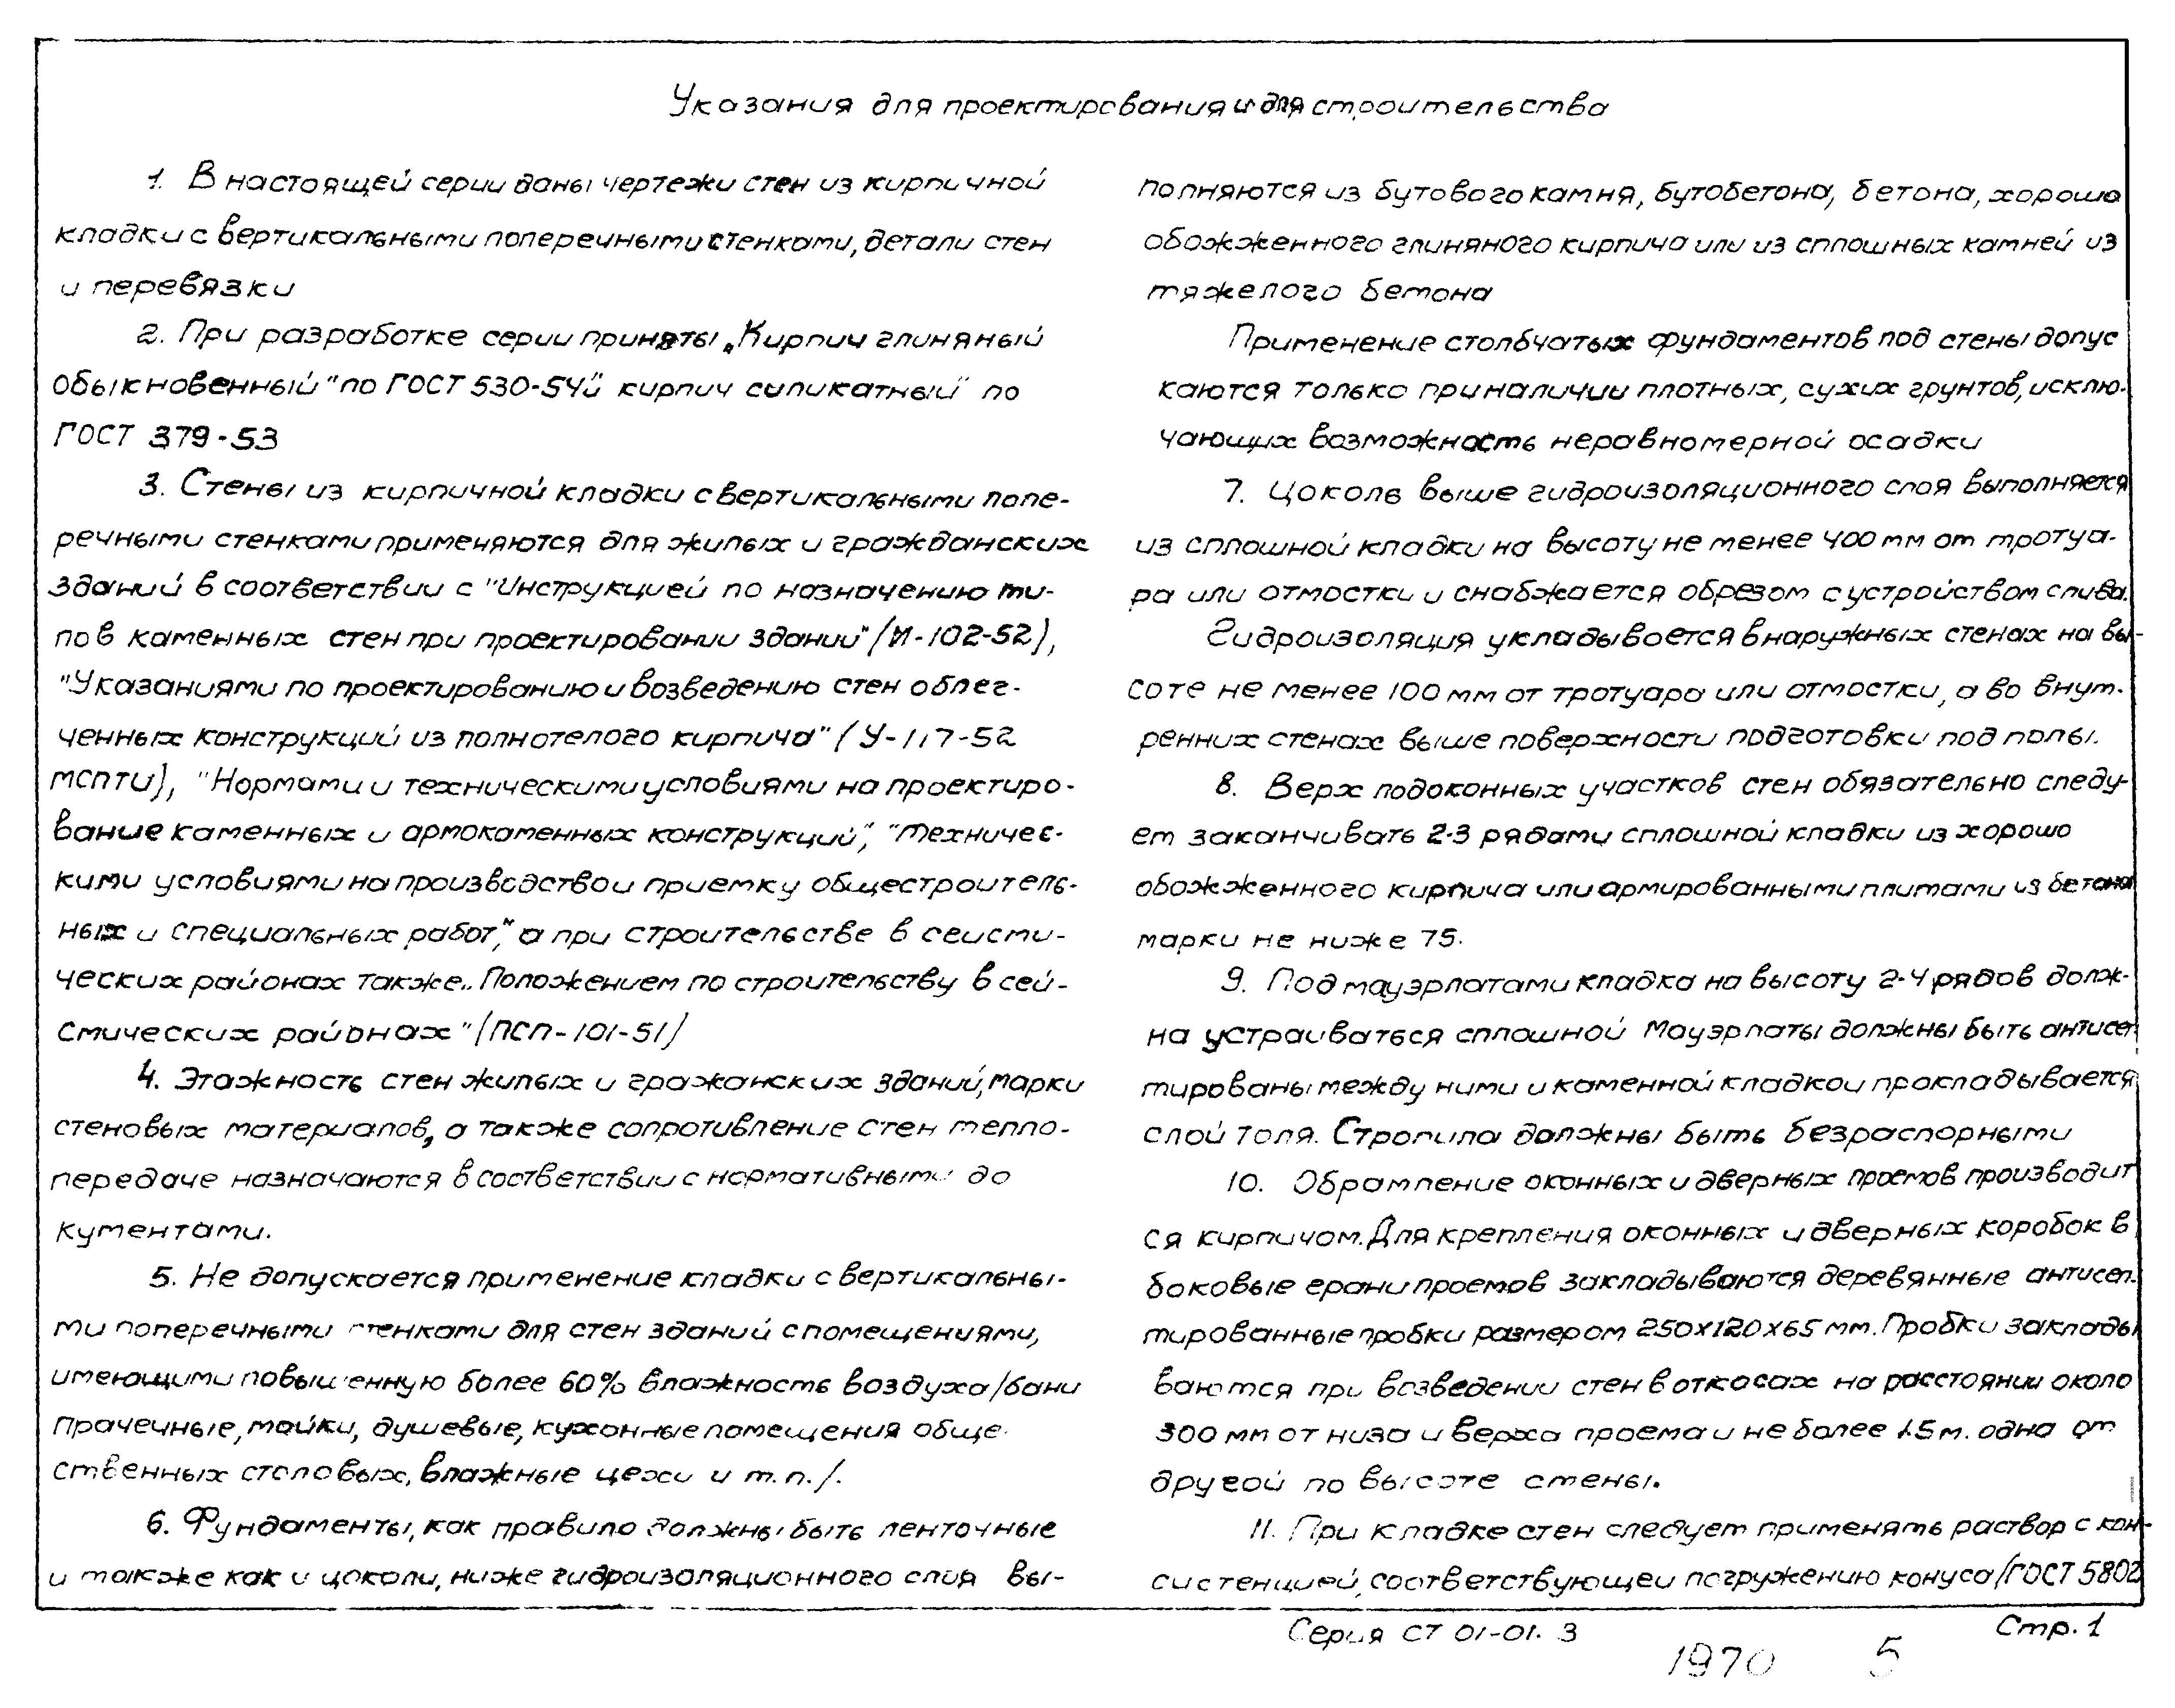 Указания для проектирования и для строительства
1. В настоящей серии даны чертежи стен из кирпичной
кладки с вертикальными поперечными стенками, детали стен
и перевязки
2. При разработке серии приняты „Кирпич глиняный
обыкновенный" по ГОСТ 530-54 и" кирпич силикатный" по
ГОСТ 379-53
3. Стены из кирпичной кладки с вертикальными попе-
речными стенками применяются для жилых и гражданских
зданий в соответствии с "Инструкцией по назначению ти-
пов каменных стен при проектировании здании" (И-102-52),
"Указаниями по проектированию и возведению стен облег-
ченных конструкций из полнотелого кирпича" (У-117-52
мспти), "Нормами и техническими условиями на проектиро-
вание каменных и армокаменных конструкций", "Техничес-
кими условиями на производство и приемку общестроитель-
ных и специальных работ," а при строительстве в сеисми-
ческих районах также „Положением по строительству в сей-
смических районах" (ПСП-101-51)
4. Этажность стен жилых и гражанских зданий, марки
стеновых материалов, а также сопротивление стен тепло-
передаче назначаются в соответствии с нормативными до
кументами.
5. Не допускается применение кладки с вертикальны-
ми поперечными стенками для стен зданий с помещениями,
имеющими повышенную более 60% влажность воздуха/бани
прачечные, мойки, душевые, кухонные помещения обще
ственных столовых, влажные цехи и т.п./.
6. Фундаменты, как правило должны быть ленточные
и также как и цоколи, ниже гидроизоляционного слоя вы-
полняются из бутового камня, бутобетона, бетона, хорошо
обожженного глиняного кирпича или из сплошных камней из
тяжелого бетона
Применение столбчатых фундаментов под стены допус
каются только при наличии плотных, сухих грунтов, исклю-
чающих возможность неравномерной осадки
7. Цоколь выше гидроизоляционного слоя выполняется
из сплошной кладки на высоту не менее 400 мм от тротуа-
ра или отмостки и снабжается обрезом с устройством слива.
Гидроизоляция укладывоется в наружных стенах на вы-
соте не менее 100 мм от тротуара или отмостки, а во внут-
ренних стенах выше поверхности подготовки под полы.
8. Верх подоконных участков стен обязательно следу-
ет заканчивать 2-3 рядами сплошной кладки из хорошо
обожженного кирпича или армированными плитами из бетона
марки не ниже 75.
9. Под мауэрлатами кладка на высоту 2-4 рядов долж-
на устраиваться сплошной Мауэрлаты должны быть антисеп
тированы между ними и каменной кладкои прокладывается
слой толя. Стропила должны быть безраспорными
10. Обрамление оконных и дверных проемов производит
ся кирпичом. Для крепления оконных и дверных коробок в
боковые грани проемов закладываются деревянные антисеп-
тированные пробки размером 250x120x65 мм. Пробки заклады
ваются при возведении стен в откосах на расстоянии около
300 мм от низа и верха проема и не более 1.5 м. одна от
другой по высоте стены.
11. При кладке стен следует применять раствор с кон-
систенцией, соответствующеи погружению конуса/ГОСТ 5802
Серия СТ 01-01. 3
Стр. 1
1970
5